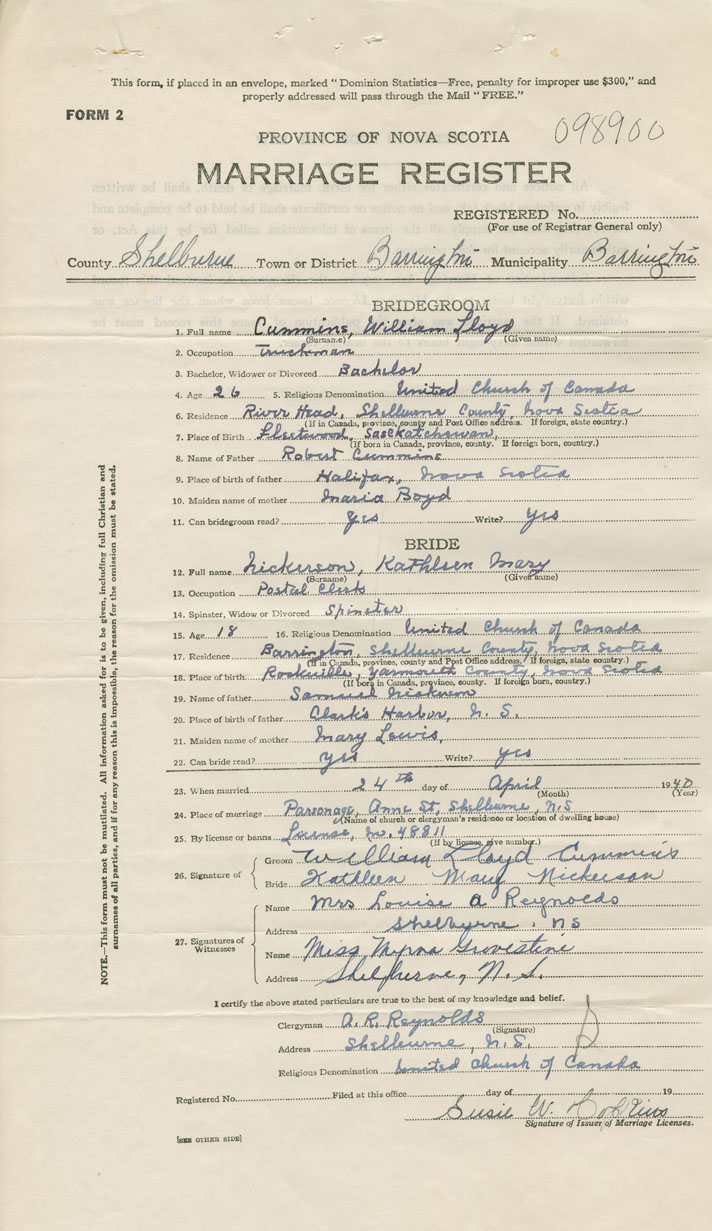 This form, if placed in an envelope, marked "Dominion Statistics—Free, penalty for improper use $300," and
properly addressed will pass through the Mail "FREE."
FORM 2
098900
PROVINCE OF NOVA SCOTIA
MARRIAGE REGISTER
REGISTERED No.
(For use of Registrar General only)
County Shelburne Town or District Barrington Municipality Barrington
BRIDEGROOM
1. Full name Cummins, William Lloyd
(Surname) (Given name)
2. Occupation Truckman
3. Bachelor, Widower or Divorced Bachelor
4. Age 26 5. Religious Denomination United Church of Canada
6. Residence River Head, Shelburne County, Nova Scotia
(If in Canada, province, county and Post Office address. If foreign, state country.)
7. Place of Birth Fleetwood, Sasckatchewan,
(If born in Canada, province, county. If foreign born, country.)
8. Name of Father Robert Cummins
9. Place of birth of father Halifax, Nova Scotia
10. Maiden name of mother Maria Boyd
11. Can bridegroom read? Yes Write? Yes
BRIDE
12. Full name Nickerson, Kathleen Mary
(Surname) (Given name)
13. Occupation Postal Clerk
14. Spinster, Widow or Divorced Spinster
15. Age 18 16. Religious Denomination United Church of Canada
17. Residence Barrington, Shelburne County, Nova Scotia
(If in Canada, province, county and Post Office address. If foreign, state country.)
18. Place of birth Rockville, Yarmouth County, Nova Scotia
(If born in Canada, province, county. If foreign born, country.)
19. Name of father Samuel Nickerson
20. Place of birth of father Clark's Harbor, N. S.
21. Maiden name of mother Mary Lewis,
22. Can bride read? Yes Write? Yes
23. When married 24th day of April 1940
(Month) (Year)
24. Place of marriage Parsonage, Anne St, Shelburne, N.S
(Name of church or clergyman's residence or location of dwelling house)
25. By license or banns License, No. 48811
(If by license, give number.)
26. Signature of
Groom William Lloyd Cummins
Bride Kathleen Mary Nickerson
27. Signatures of Witnesses
Name Mrs Louise A Reynolds
Address Shelburne, NS
Name Miss Myrna Grovestine
Address Shelburne, N.S.
I certify the above stated particulars are true to the best of my knowledge and belief.
Clergyman A. R. Reynolds
(Signature)
Address Shelburne, N. S.
Religious Denomination United Church of Canada
Registered No. Filed at this office day of 19
Susie W. Hopkins
Signature of Issuer of Marriage Licenses.
[SEE OTHER SIDE]
NOTE.—This form must not be mutilated. All information asked for is to be given, including full Christian and
surnames of all parties, and if for any reason this is impossible, the reason for the omission must be stated.